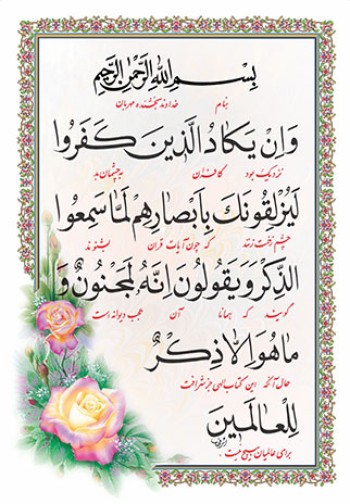 بِسْمِ اللهِ الرَّحْمٰنِ الرَّحیمِ
بنام خداوند بخشنده مهربان
وَاِنْ یَکادُ الَّذینَ کَفَرُوا
نزدیک بود کافران به چشمهای بد
لَیُزْلِقُونَکَ بِاَبْصارِهِمْ لَمّا سَمِعُوا
چشم زخمت زنند که چون آیات قران بشنوند
الذِّکْرَ وَ یَقُولُونَ اِنَّهُ لَمَجْنُونٌ وَ
گویند که همانا آن عجب دیوانه است
ما هُوَ اِلّا ذِکْرٌ
حال آنکه این کتاب الهی جز شرافت
لِلْعالَمینَ
برای عالمیان هیچ نیست